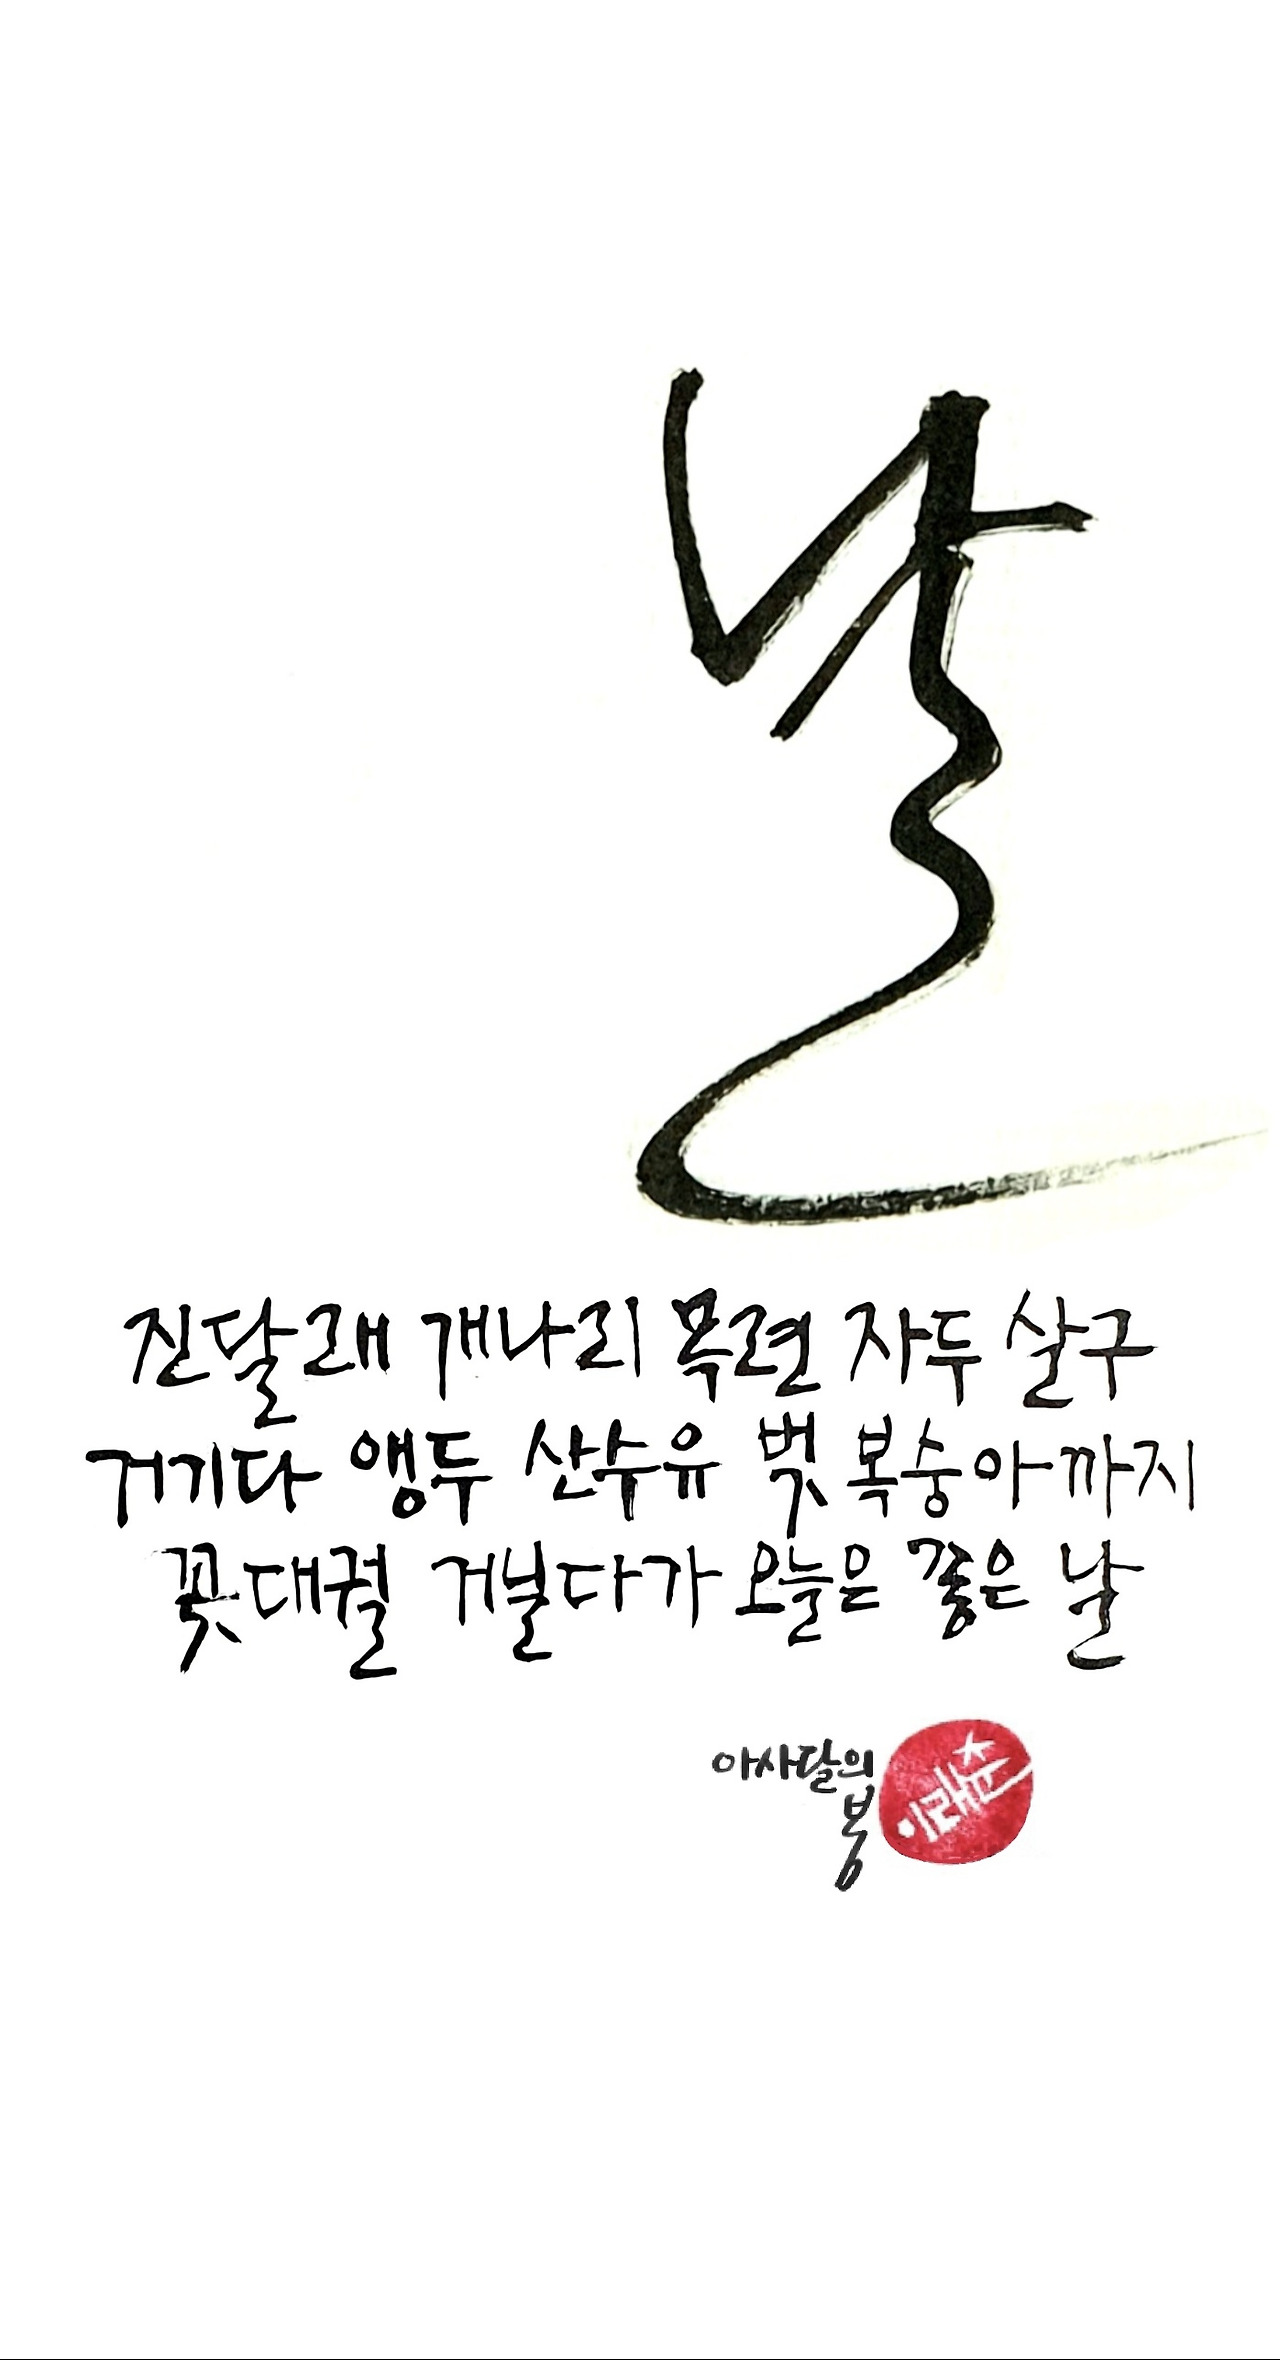 날
진달래 개나리 목련 자두 살구
거기다 앵두 산수유 벚 복숭아까지
꽃대궐 거닐다가 오늘은 좋은 날
아사달의
봄
이래춘